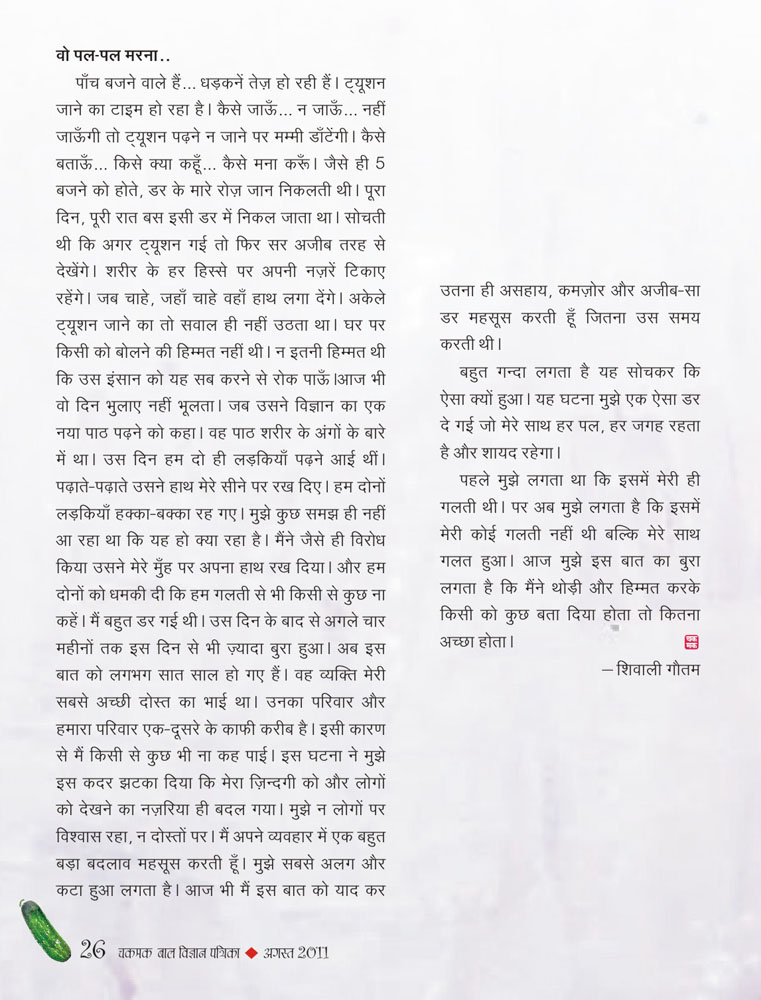 वो पल-पल मरना..
पाँच बजने वाले हैं... धड़कनें तेज़ हो रही हैं। ट्यूशन
जाने का टाइम हो रहा है। कैसे जाऊँ... न जाऊँ... नहीं
जाऊँगी तो ट्यूशन पढ़ने न जाने पर मम्मी डाँटेंगी। कैसे
बताऊँ... किसे क्या कहूँ... कैसे मना करूँ। जैसे ही 5
बजने को होते, डर के मारे रोज़ जान निकलती थी। पूरा
दिन, पूरी रात बस इसी डर में निकल जाता था। सोचती
थी कि अगर ट्यूशन गई तो फिर सर अजीब तरह से
देखेंगे। शरीर के हर हिस्से पर अपनी नज़रें टिकाए
रहेंगे। जब चाहे, जहाँ चाहे वहाँ हाथ लगा देंगे। अकेले
ट्यूशन जाने का तो सवाल ही नहीं उठता था। घर पर
किसी को बोलने की हिम्मत नहीं थी। न इतनी हिम्मत थी
कि उस इंसान को यह सब करने से रोक पाऊँ।आज भी
वो दिन भुलाए नहीं भूलता। जब उसने विज्ञान का एक
नया पाठ पढ़ने को कहा। वह पाठ शरीर के अंगों के बारे
में था। उस दिन हम दो ही लड़कियाँ पढ़ने आई थीं।
पढ़ाते-पढ़ाते उसने हाथ मेरे सीने पर रख दिए। हम दोनों
लड़कियाँ हक्का-बक्का रह गए। मुझे कुछ समझ ही नहीं
आ रहा था कि यह हो क्या रहा है। मैंने जैसे ही विरोध
किया उसने मेरे मुँह पर अपना हाथ रख दिया। और हम
दोनों को धमकी दी कि हम गलती से भी किसी से कुछ ना
कहें। मैं बहुत डर गई थी। उस दिन के बाद से अगले चार
महीनों तक इस दिन से भी ज़्यादा बुरा हुआ। अब इस
बात को लगभग सात साल हो गए हैं। वह व्यक्ति मेरी
सबसे अच्छी दोस्त का भाई था। उनका परिवार और
हमारा परिवार एक-दूसरे के काफी करीब है। इसी कारण
से मैं किसी से कुछ भी ना कह पाई। इस घटना ने मुझे
इस कदर झटका दिया कि मेरा ज़िन्दगी को और लोगों
को देखने का नज़रिया ही बदल गया। मुझे न लोगों पर
विश्वास रहा, न दोस्तों पर। मैं अपने व्यवहार में एक बहुत
बड़ा बदलाव महसूस करती हूँ। मुझे सबसे अलग और
कटा हुआ लगता है। आज भी मैं इस बात को याद कर
उतना ही असहाय, कमज़ोर और अजीब-सा
डर महसूस करती हूँ जितना उस समय
करती थी।
बहुत गन्दा लगता है यह सोचकर कि
ऐसा क्यों हुआ। यह घटना मुझे एक ऐसा डर
दे गई जो मेरे साथ हर पल, हर जगह रहता
है और शायद रहेगा।
पहले मुझे लगता था कि इसमें मेरी ही
गलती थी। पर अब मुझे लगता है कि इसमें
मेरी कोई गलती नहीं थी बल्कि मेरे साथ
गलत हुआ। आज मुझे इस बात का बुरा
लगता है कि मैंने थोड़ी और हिम्मत करके
किसी को कुछ बता दिया होता तो कितना
अच्छा होता।
चक
मक
– शिवाली गौतम
26 चकमक बाल विज्ञान पत्रिका ◆ अगस्त 2011